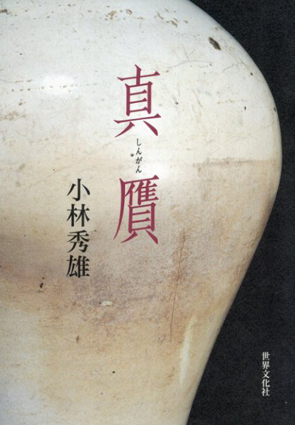 真贋
しんがん
小林秀雄
世界文化社